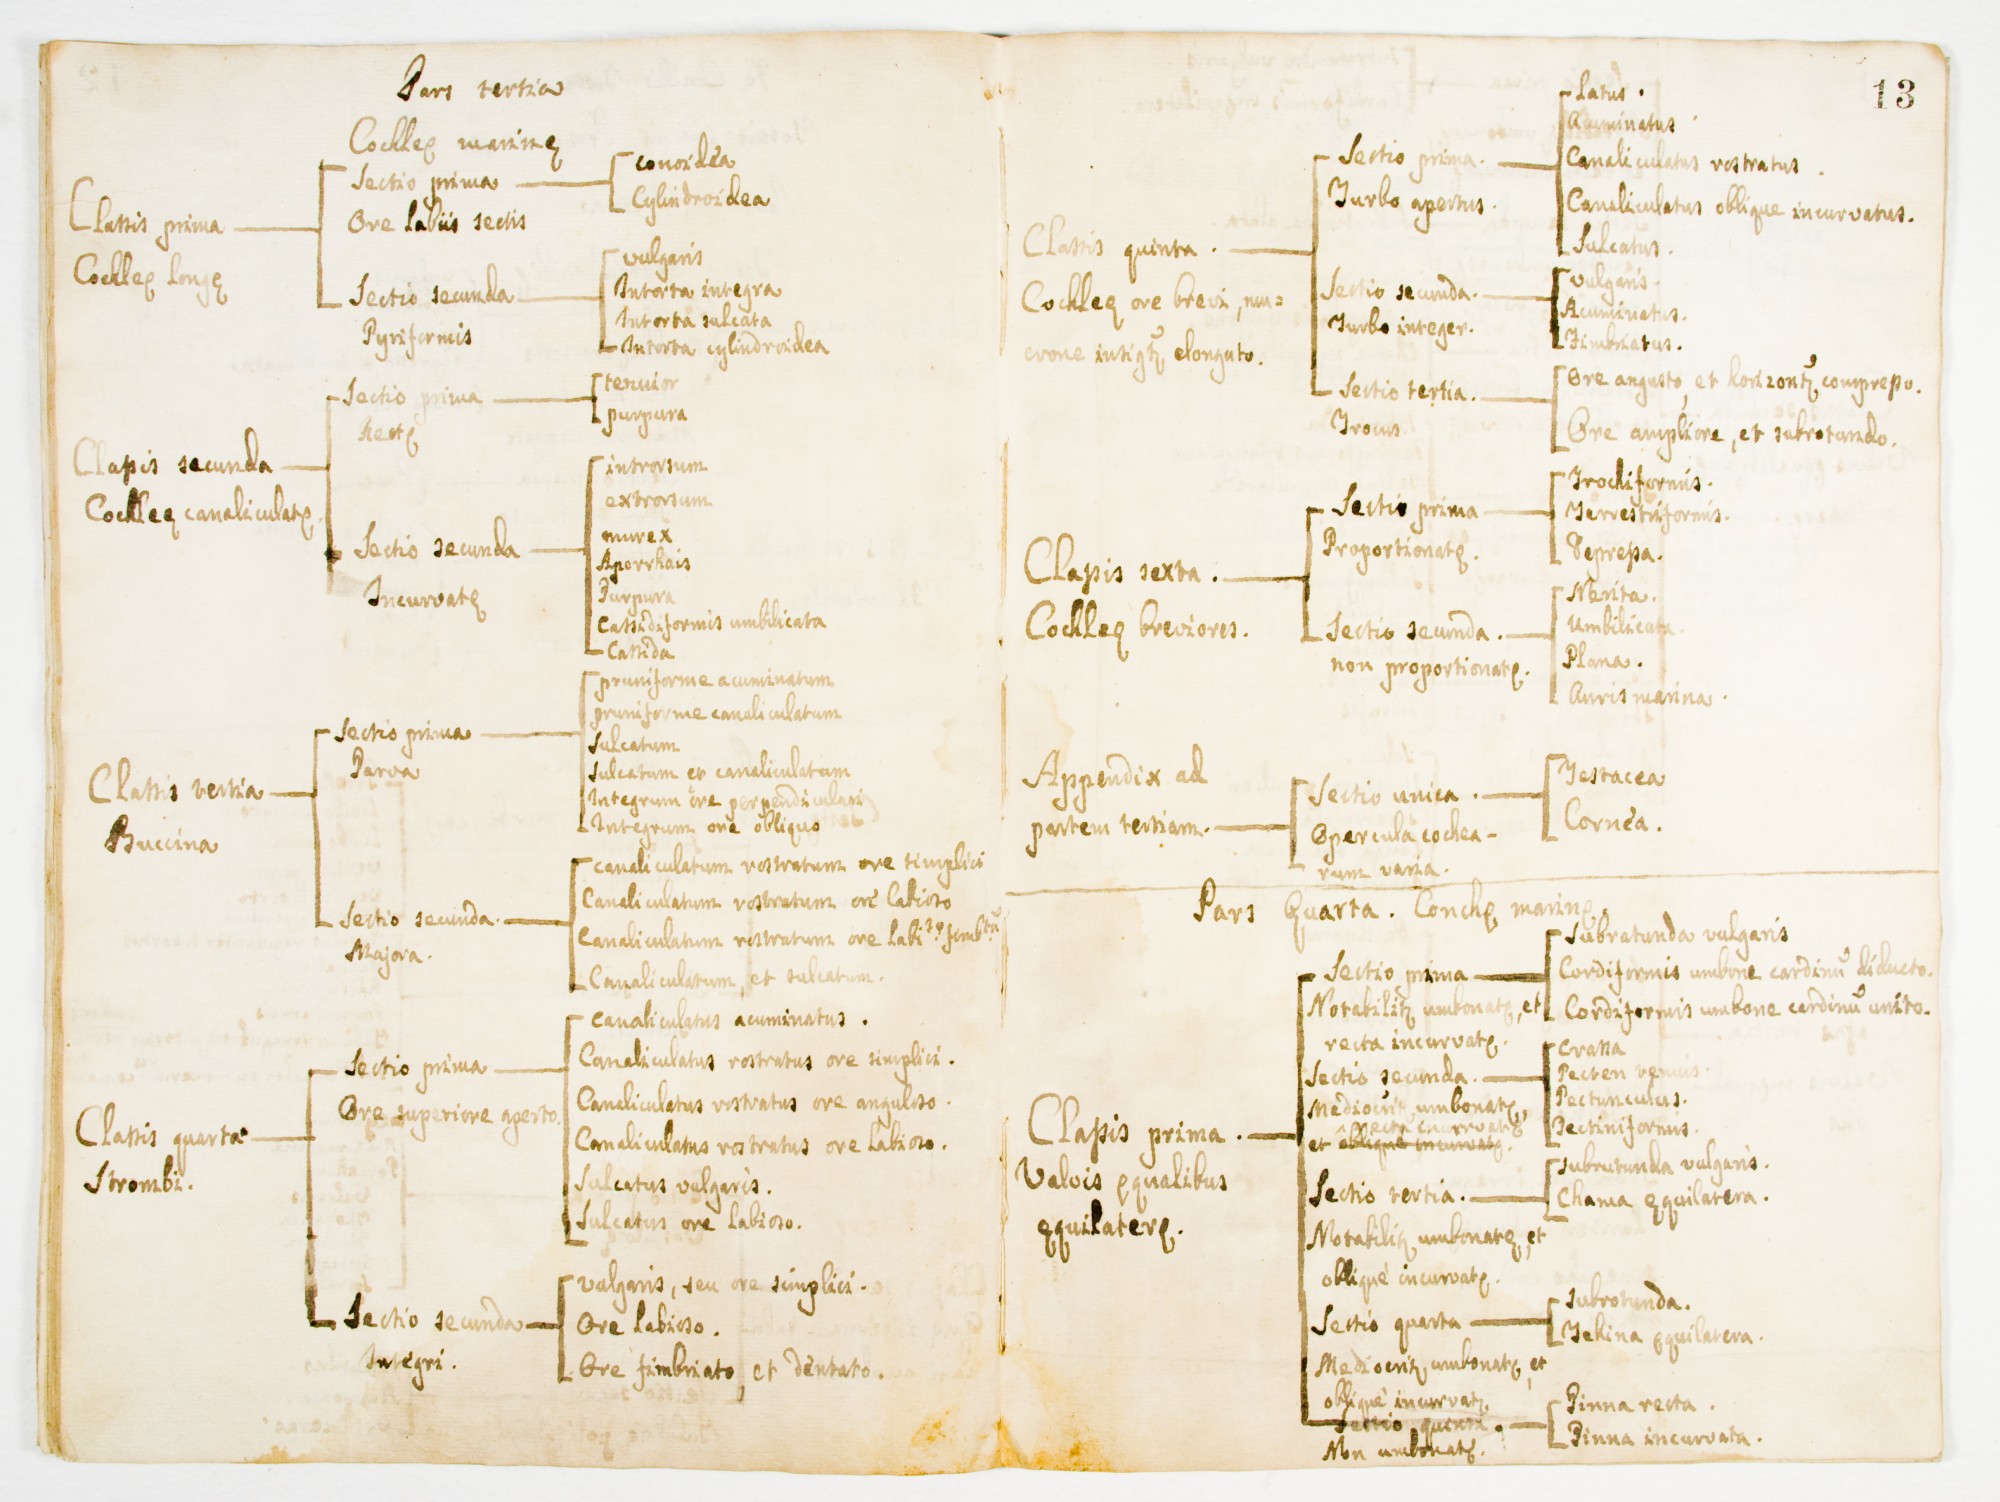 Pars tertia
Cochleę marinę
Classis prima
Cochleę longę
Sectio prima
Ore labiis sectis
conoidéa
Cylindroidea
Sectio secunda
Pyriformis
vulgaris
Intorta integra
Intorta sulcata
Intorta cylindroidea
Classis secunda
Cochleę canaliculatę.
Sectio prima
Rectę
tenuior
purpura
Sectio secunda
Incurvatę
introrsum
extrorsum
murex
Aporrhais
Purpura
Cassidiformis umbilicata
Cassida
Classis tertia
Buccina
Sectio prima
Parva
pruniforme acuminatum
pruniforme canaliculatum
Sulcatum
Sulcatum et canaliculatum
Integrum ore perpendiculari
Integrum ore obliquo
Sectio secunda.
Majora.
canaliculatum rostratum ore simplici
Canaliculatum rostratum ore labioso
Canaliculatum rostratum ore
Canaliculatum, et sulcatum.
Classis quarta
Strombi.
Sectio prima
Ore superiore aperto.
Canaliculatus acuminatus.
Canaliculatus rostratus ore simplici.
Canaliculatus rostratus ore anguloso.
Canaliculatus rostratus ore labioso.
Sulcatus vulgaris.
Sulcatus ore labioso.
Sectio secunda
Integri.
vulgaris, seu ore simplici.
Ore labioso.
Ore fimbriato, et dentato.
13
Classis quinta.
Cochleę ore brevi, mu=
crone elongato.
Sectio prima.
Turbo apertus.
Latus.
Acuminatus
Canaliculatus rostratus.
Canaliculatus oblique incurvatus.
Sulcatus.
Sectio secunda.
Turbo integer.
Vulgaris.
Acuminatus.
Fimbriatus.
Sectio tertia.
Trocus
Ore angusto, et compresso.
Ore ampliore, et subrotundo.
Classis sexta.
Cochleę breviores.
Sectio prima
Proportionatę.
Trochiformis.
Terrestriformis.
Depressa.
Sectio secunda.
non proportionatę.
Nerita.
Umbilicata.
Plana.
Auris marina.
Appendix ad
partem tertiam.
Sectio unica.
Opercula cochlea-
rum varia.
Testacea
Cornéa.
Pars Quarta. Conchę marinę.
Classis prima.
Valvis ęqualibus
ęquilaterę.
Sectio prima
umbonatę, et
recta incurvatę.
Subratunda vulgaris
Cordiformis umbone diducto.
Cordiformis umbone unito.
Sectio secunda.
umbonatę,
recta incurvatę
et oblique incurvatę.
Crassa
Pecten
Pectunculus.
Pectiniformis.
Sectio tertia.
umbonatę, et
obliqué incurvatę.
Subrutunda vulgaris.
Chama ęquilatera.
Sectio quarta
umbonatę, et
obliqué incurvatę
Subrotunda.
Telina ęquilatera.
Sectio quinta.
Non umbonatę.
Pinna recta.
Pinna incurvata.